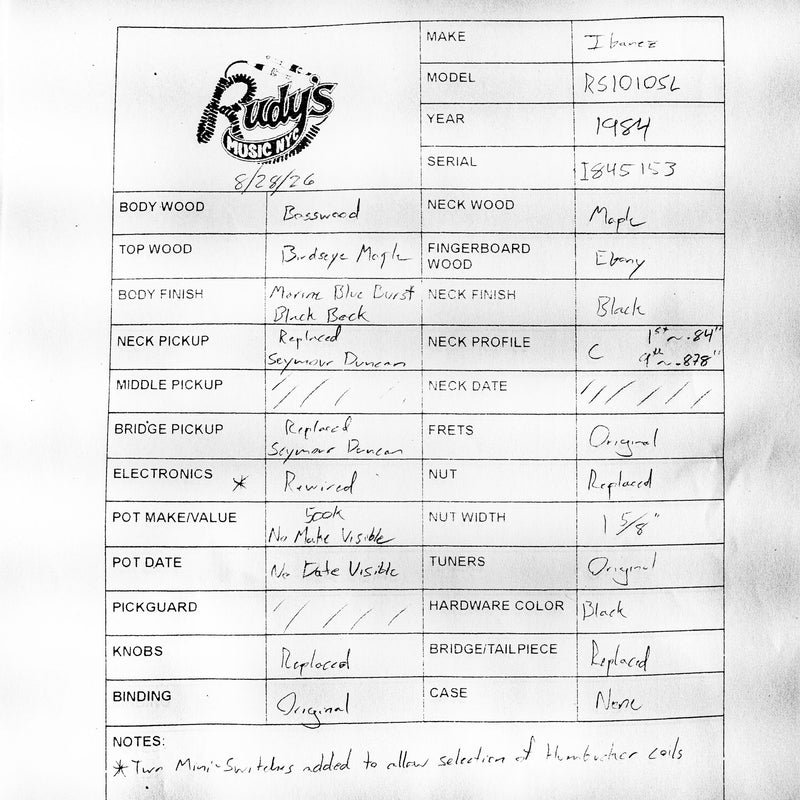 Rudy's
MUSIC NYC
8/28/26
MAKE Ibanez
MODEL RS1010SL
YEAR 1984
SERIAL I845153
BODY WOOD Basswood
NECK WOOD Maple
TOP WOOD Birdseye Maple
FINGERBOARD WOOD Ebony
BODY FINISH Marine Blue Burst
Black Back
NECK FINISH Black
NECK PICKUP Replaced
Seymour Duncan
NECK PROFILE C 1st ~.84"
9th ~.878"
MIDDLE PICKUP / / / / /
NECK DATE / / / / / /
BRIDGE PICKUP Replaced
Seymour Duncan
FRETS Original
ELECTRONICS * Rewired
NUT Replaced
POT MAKE/VALUE 500k
No Make Visible
NUT WIDTH 1 5/8"
POT DATE No Date Visible
TUNERS Original
PICKGUARD / / / / /
HARDWARE COLOR Black
KNOBS Replaced
BRIDGE/TAILPIECE Replaced
BINDING Original
CASE None
NOTES:
* Two Mini-Switches added to allow selection of Humbucker coils